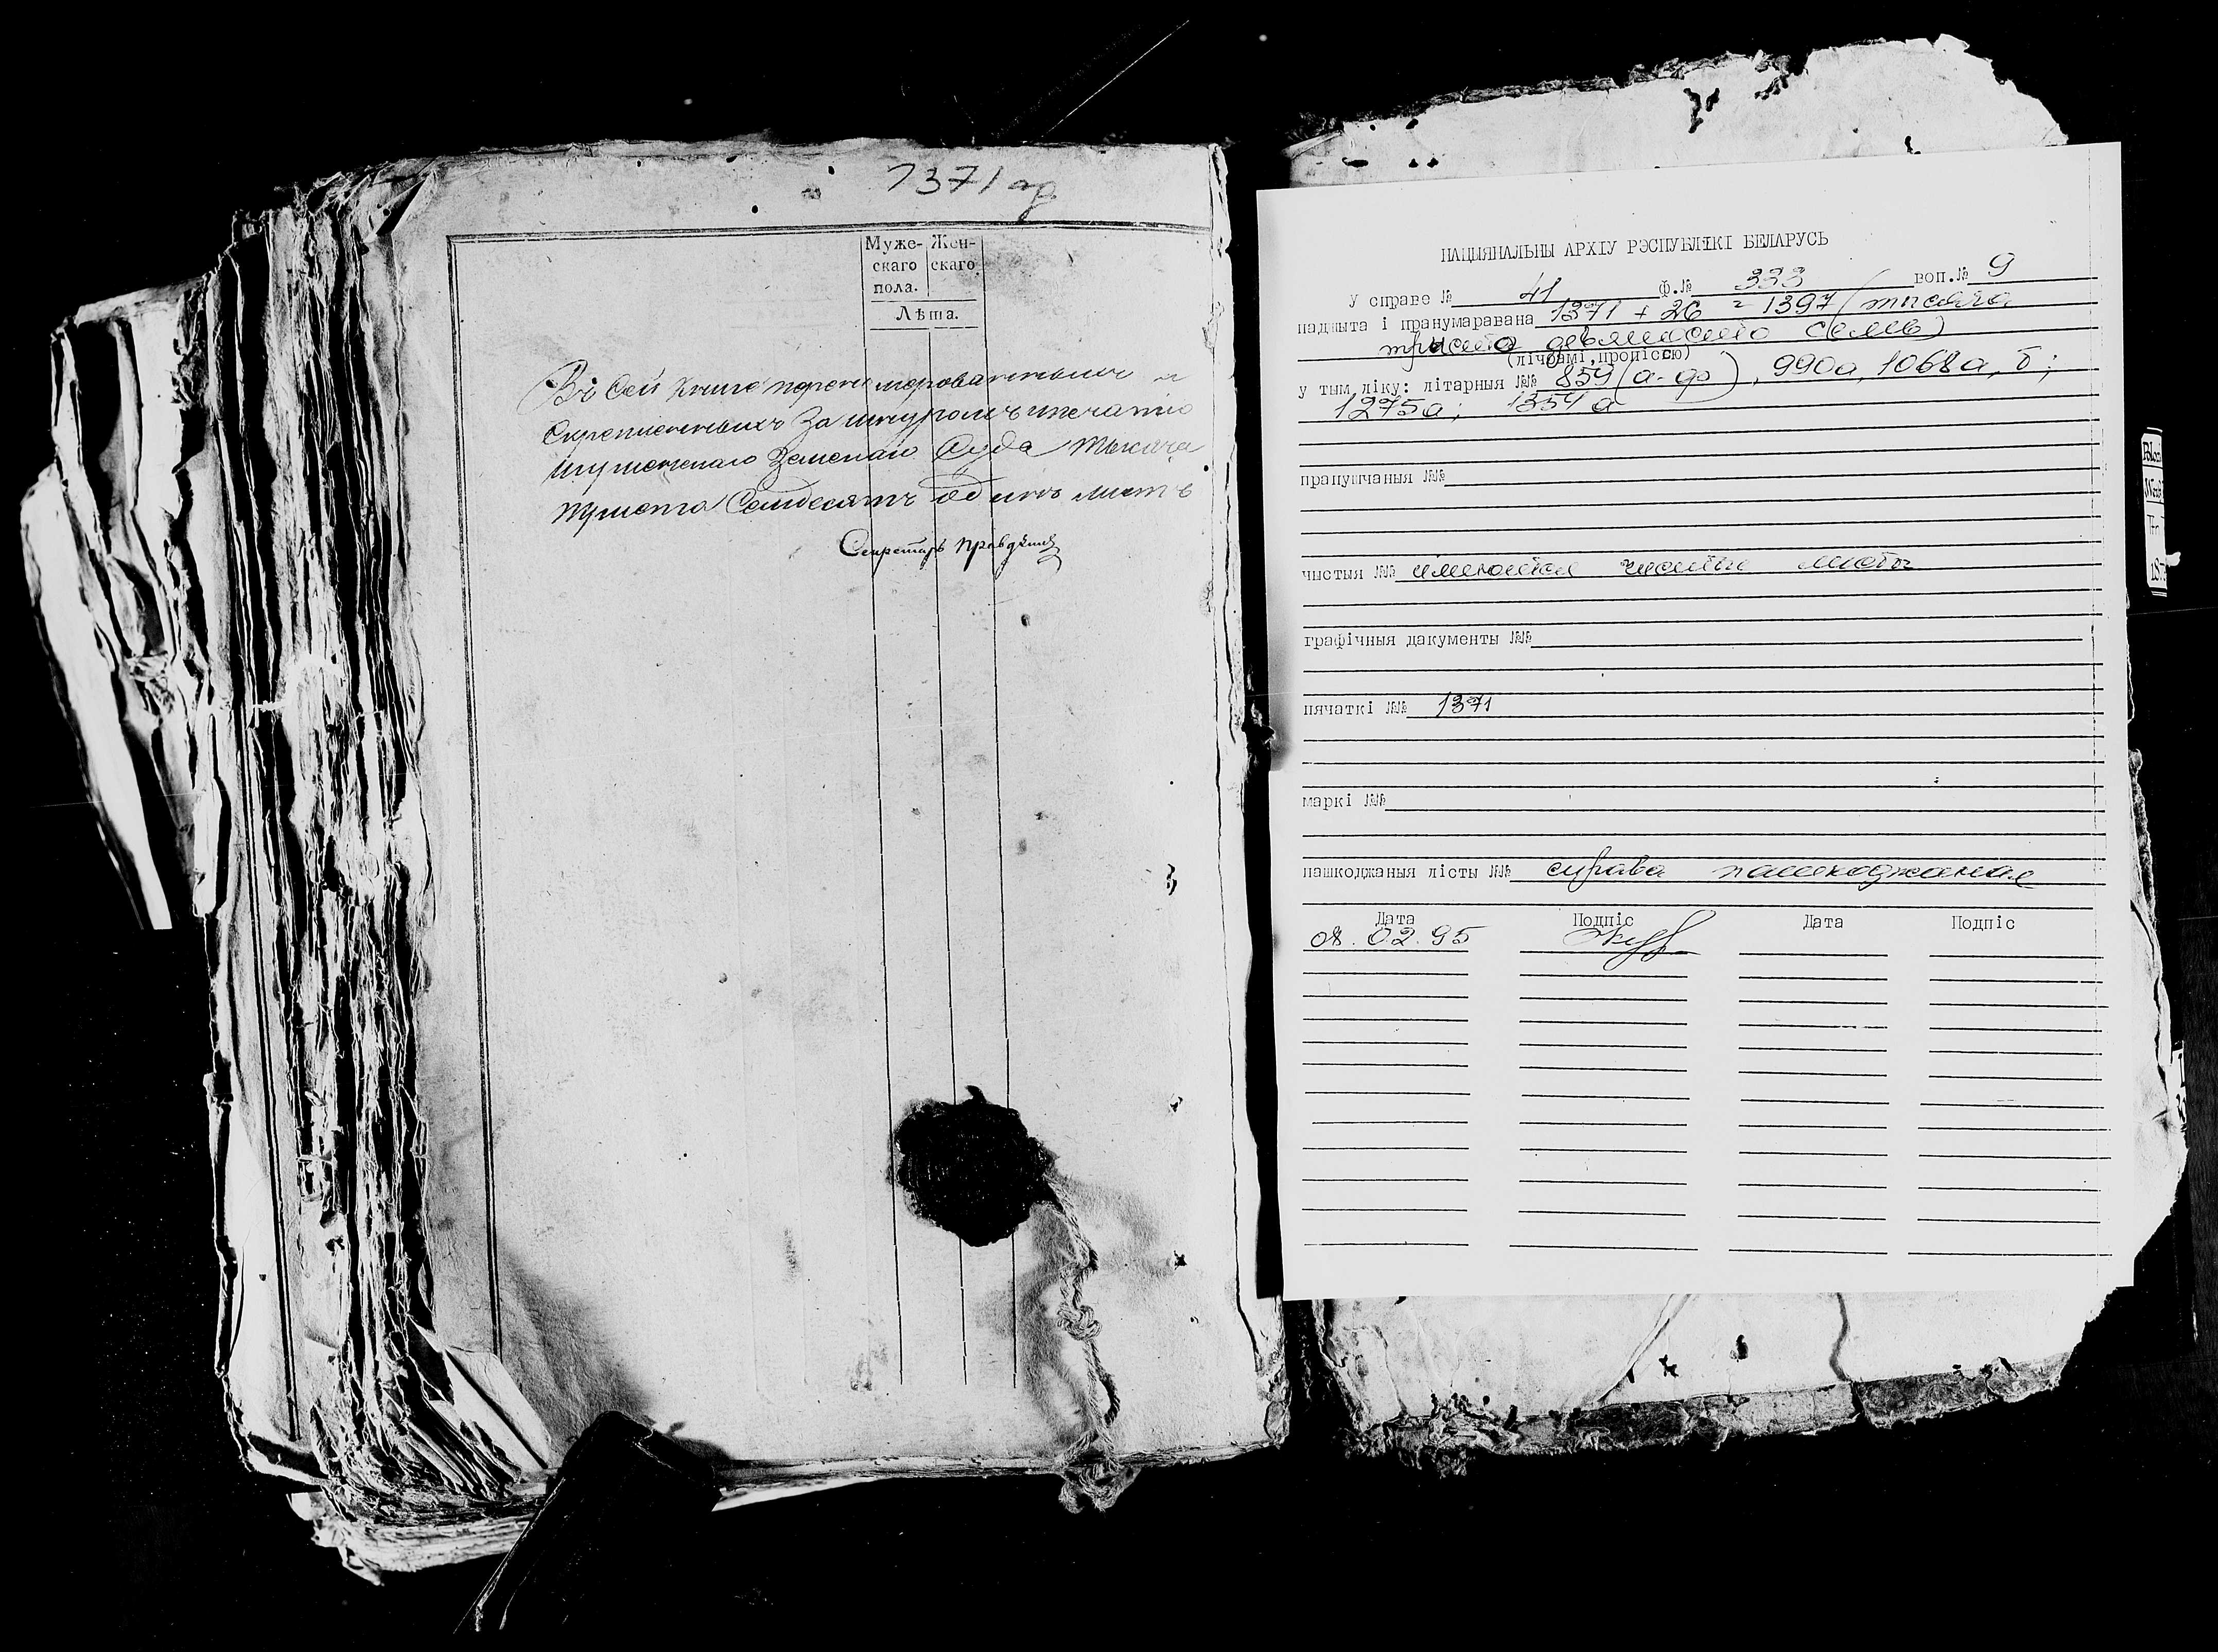 1371
Муже- Жен-
скаго скаго
пола.
Лѣта.
Въ Сей Книге перенумерованныхъ и
Скрепленныхъ За шнуромъ и печатью
Игуменскаго Земскаго Суда тысяча
триста Семдесятъ один листъ
Секретарь
НАЦЫЯНАЛЬНЫ АРХІУ РЭСПУБЛІКІ БЕЛАРУСЬ
У справе № 41 Ф.№ 333 воп.№ 9
падшыта і пранумаравана 1371 + 26 = 1397 (тысяча
трыста девяносто семь)
(лічбамі,пропіссю)
у тым ліку: літарныя №№ 859 (а-ф), 990а, 1068а, б;
1275а; 1354а
прапушчаныя №№
чыстыя №№ имеются чистые листы
графічныя дакументы №№
пячаткі №№ 1371
маркі №№
пашкоджаныя лісты №№ справа пашкоджаная
Дата Подпіс Дата Подпіс
08.02.95